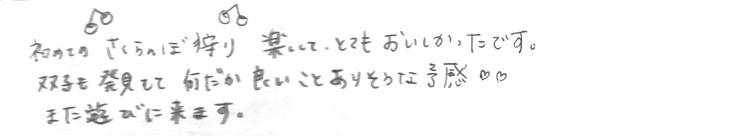 初めての さくらんぼ狩り 楽しくて、とても おいしかったです。
双子も 発見して 何だか 良いことありそうな 予感♡♡
また遊びに来ます。